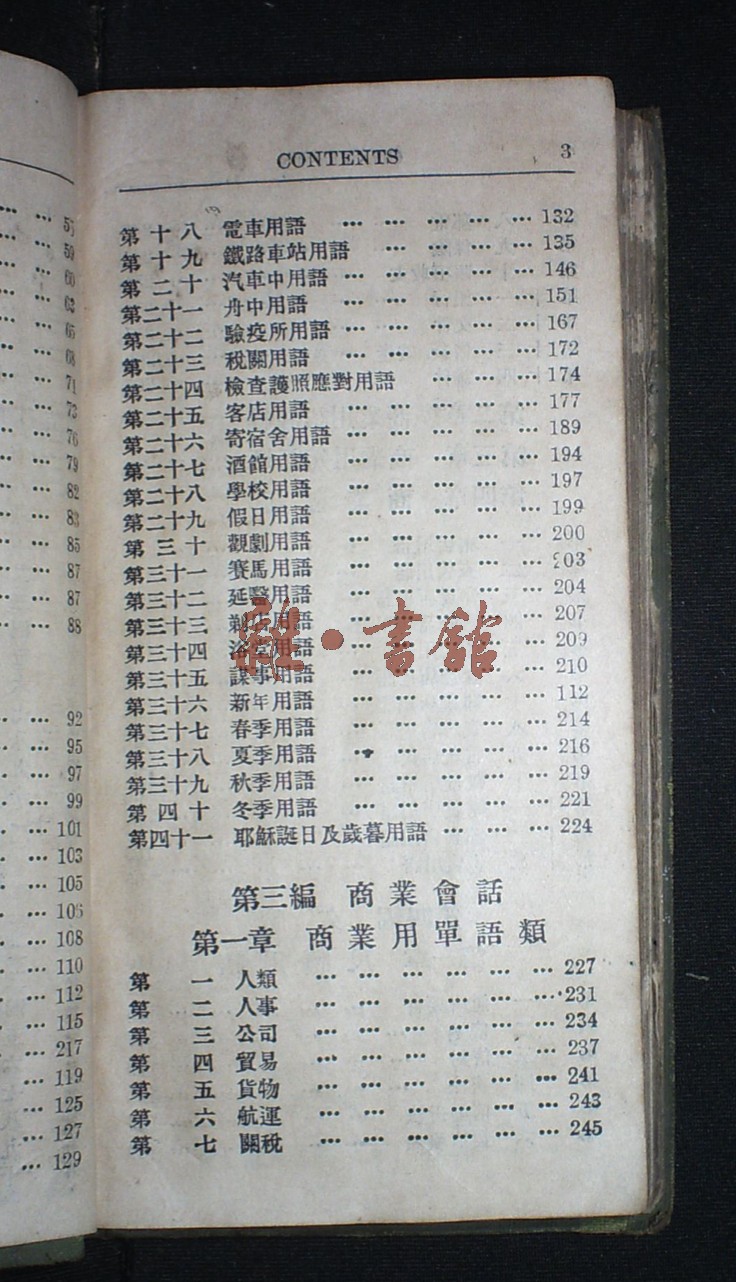 57
59
60
62
65
68
71
73
76
79
82
83
85
87
87
88
... 92
... 95
... 97
... 99
... 101
... 103
... 105
... 106
... 108
... 110
... 112
... 115
... 217
... 119
... 125
... 127
... 129
CONTENTS 3
第十八 電車用語 ... ... ... ... ... 132
第十九 鐵路車站用語 ... ... ... ... 135
第二十 汽車中用語 ... ... ... ... ... 146
第二十一 舟中用語 ... ... ... ... ... 151
第二十二 驗疫所用語 ... ... ... ... ... 167
第二十三 稅關用語 ... ... ... ... ... 172
第二十四 檢查護照應對用語 ... ... ... 174
第二十五 客店用語 ... ... ... ... ... 177
第二十六 寄宿舍用語 ... ... ... ... ... 189
第二十七 酒館用語 ... ... ... ... ... 194
第二十八 學校用語 ... ... ... ... ... 197
第二十九 假日用語 ... ... ... ... ... 199
第三十 觀劇用語 ... ... ... ... ... 200
第三十一 賽馬用語 ... ... ... ... ... 203
第三十二 延醫用語 ... ... ... ... ... 204
第三十三 剃店用語 ... ... ... ... ... 207
第三十四 浴堂用語 ... ... ... ... ... 209
第三十五 謀事用語 ... ... ... ... ... 210
第三十六 新年用語 ... ... ... ... ... 112
第三十七 春季用語 ... ... ... ... ... 214
第三十八 夏季用語 ... ... ... ... ... 216
第三十九 秋季用語 ... ... ... ... ... 219
第四十 冬季用語 ... ... ... ... ... 221
第四十一 耶穌誕日及歲暮用語 ... ... ... 224
雜·書館
第三編 商業會話
第一章 商業用單語類
第一 人類 ... ... ... ... ... ... 227
第二 人事 ... ... ... ... ... ... 231
第三 公司 ... ... ... ... ... ... 234
第四 貿易 ... ... ... ... ... ... 237
第五 貨物 ... ... ... ... ... ... 241
第六 航運 ... ... ... ... ... ... 243
第七 關稅 ... ... ... ... ... ... 245